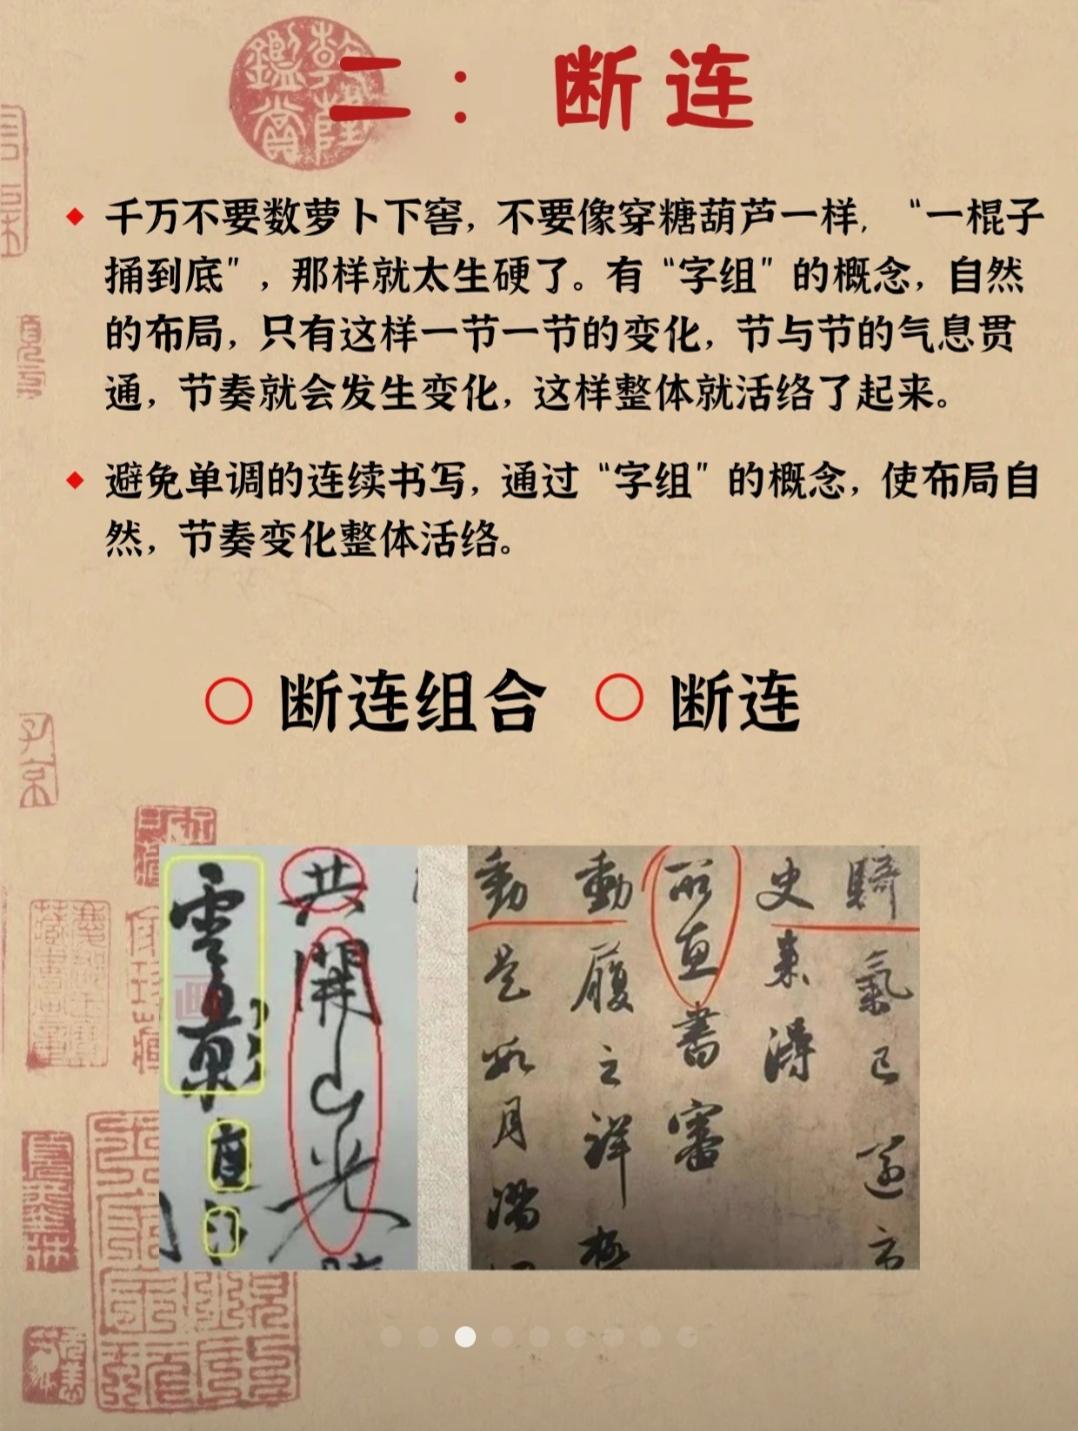 二：断连
千万不要数萝卜下窖，不要像穿糖葫芦一样，“一棍子
捅到底”，那样就太生硬了。有“字组”的概念，自然
的布局，只有这样一节一节的变化，节与节的气息贯
通，节奏就会发生变化，这样整体就活络了起来。
避免单调的连续书写，通过“字组”的概念，使布局自
然，节奏变化整体活络。
断连组合 断连
共開山光
雲影度
騎氣已
史来得
所直書審
動履之祥
動是如月